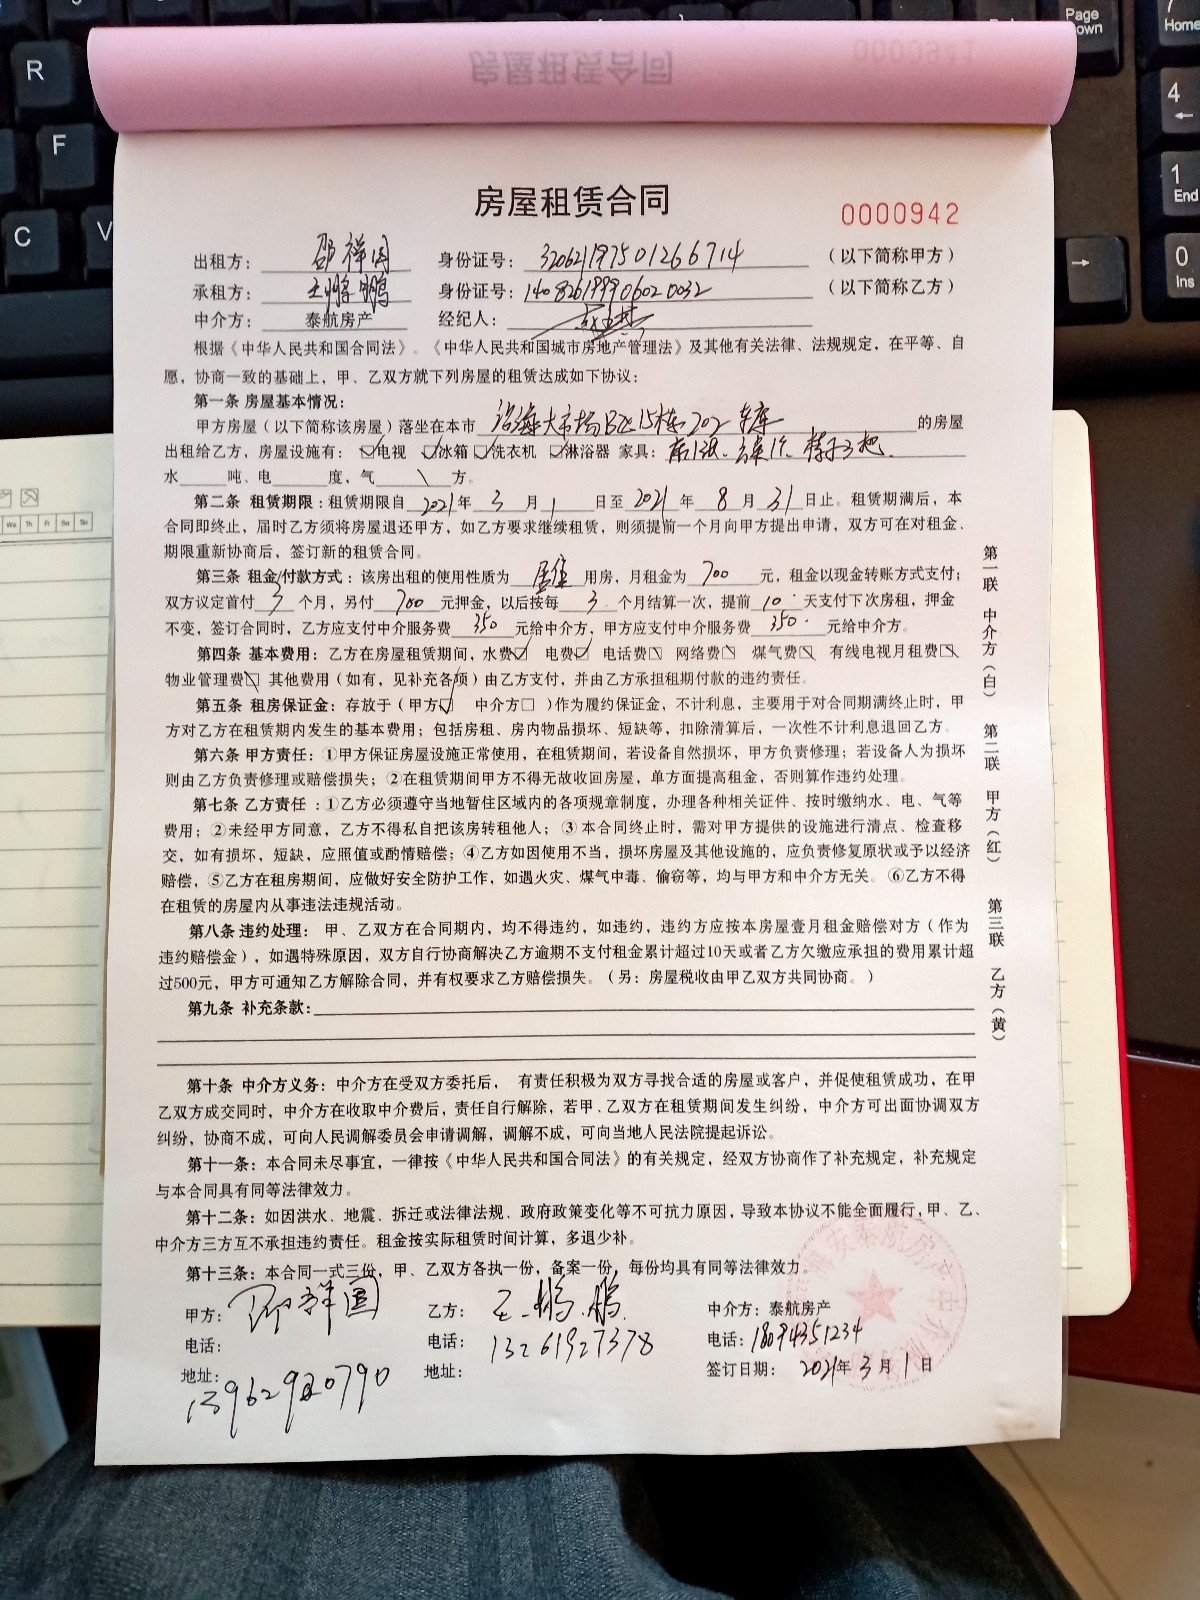 Page
Down
7
Home
R
4
←
F
1
End
C
V
→
0
Ins
We Th Fr Sa Su
房屋租赁合同
0000941
房屋租赁合同
0000942
出租方：邵祥圆 身份证号：320621197501266714 （以下简称甲方）
承租方：王鹏鹏 身份证号：140826199906020032 （以下简称乙方）
中介方：泰航房产 经纪人：
根据《中华人民共和国合同法》。《中华人民共和国城市房地产管理法》及其他有关法律、法规规定，在平等、自
愿，协商一致的基础上，甲、乙双方就下列房屋的租赁达成如下协议：
第一条 房屋基本情况：
甲方房屋（以下简称该房屋）落坐在本市 沿海大市场B区15栋202 车库 的房屋
出租给乙方，房屋设施有：☑电视 ☑冰箱 ☑洗衣机 ☑淋浴器 家具：
水 吨、电 度，气 \ 方。
第二条 租赁期限：租赁期限自 2021 年 3 月 1 日至 2021 年 8 月 31 日止。租赁期满后，本
合同即终止，届时乙方须将房屋退还甲方，如乙方要求继续租赁，则须提前一个月向甲方提出申请，双方可在对租金、
期限重新协商后，签订新的租赁合同。
第三条 租金/付款方式：该房出租的使用性质为 居住 用房，月租金为 700 元，租金以现金转账方式支付；
双方议定首付 3 个月，另付 700 元押金，以后按每 3 个月结算一次，提前 10 天支付下次房租，押金
不变，签订合同时，乙方应支付中介服务费 350 元给中介方，甲方应支付中介服务费 350 元给中介方。
第四条 基本费用：乙方在房屋租赁期间，水费☑ 电费☑ 电话费□ 网络费□ 煤气费□ 有线电视月租费□
物业管理费□ 其他费用（如有，见补充各项）由乙方支付，并由乙方承担租期付款的违约责任。
第五条 租房保证金：存放于（甲方☑ 中介方□ ）作为履约保证金，不计利息，主要用于对合同期满终止时，甲
方对乙方在租赁期内发生的基本费用；包括房租、房内物品损坏、短缺等，扣除清算后，一次性不计利息退回乙方。
第六条 甲方责任：①甲方保证房屋设施正常使用，在租赁期间，若设备自然损坏，甲方负责修理；若设备人为损坏
则由乙方负责修理或赔偿损失；②在租赁期间甲方不得无故收回房屋，单方面提高租金，否则算作违约处理。
第七条 乙方责任：①乙方必须遵守当地暂住区域内的各项规章制度，办理各种相关证件、按时缴纳水、电、气等
费用；②未经甲方同意，乙方不得私自把该房转租他人；③本合同终止时，需对甲方提供的设施进行清点、检查移
交，如有损坏，短缺，应照值或酌情赔偿；④乙方如因使用不当，损坏房屋及其他设施的，应负责修复原状或予以经济
赔偿，⑤乙方在租房期间，应做好安全防护工作，如遇火灾、煤气中毒、偷窃等，均与甲方和中介方无关。⑥乙方不得
在租赁的房屋内从事违法违规活动。
第八条 违约处理： 甲、乙双方在合同期内，均不得违约，如违约，违约方应按本房屋壹月租金赔偿对方（作为
违约赔偿金），如遇特殊原因，双方自行协商解决乙方逾期不支付租金累计超过10天或者乙方欠缴应承担的费用累计超
过500元，甲方可通知乙方解除合同，并有权要求乙方赔偿损失。（另：房屋税收由甲乙双方共同协商。）
第九条 补充条款：
第十条 中介方义务：中介方在受双方委托后， 有责任积极为双方寻找合适的房屋或客户，并促使租赁成功，在甲
乙双方成交同时，中介方在收取中介费后，责任自行解除，若甲、乙双方在租赁期间发生纠纷，中介方可出面协调双方
纠纷，协商不成，可向人民调解委员会申请调解，调解不成，可向当地人民法院提起诉讼。
第十一条：本合同未尽事宜，一律按《中华人民共和国合同法》的有关规定，经双方协商作了补充规定，补充规定
与本合同具有同等法律效力。
第十二条：如因洪水、地震、拆迁或法律法规、政府政策变化等不可抗力原因，导致本协议不能全面履行，甲、乙、
中介方三方互不承担违约责任。租金按实际租赁时间计算，多退少补。
第十三条：本合同一式三份，甲、乙双方各执一份，备案一份，每份均具有同等法律效力。
甲方：邵祥圆 乙方：王鹏鹏 中介方：泰航房产
电话： 电话：13261927378 电话：18094351234
地址： 地址： 签订日期：2021年 3 月 1 日
13962920790
第一联 中介方（白） 第二联 甲方（红） 第三联 乙方（黄）